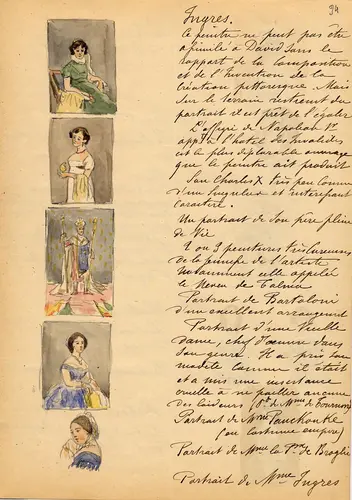 94
Ingres.
Ce peintre ne peut pas être
assimilé à David sous le
rapport de la composition
et de l'invention de la
Création pittoresque. Mais
sur le terrain restreint du
portrait il est prêt de l'égaler
L'effigie de Napoléon 1er
appt à l'hôtel des Invalides
est le plus déplorable ouvrage
que le peintre ait produit
Son Charles X très peu connu
d'un singulier et intéressant
caractère.
Un portrait de son père plein
de vie
2 ou 3 peintures très curieuses
de la jeunesse de l'artiste
notamment celle appelée
le Neveu de Talma
Portrait de Bartolini
d'un excellent arrangement
Portrait d'une Vieille
dame, chef d'œuvre dans
son genre. Il a pris son
modèle comme il était
et a mis une insistance
cruelle à ne pallier aucune
des laideurs (Pt de Mme de Tournon)
Portrait de Mme Panckouke
(en costume empire)
Portrait de Mme la Psse de Broglie
Portrait de Mme Ingres